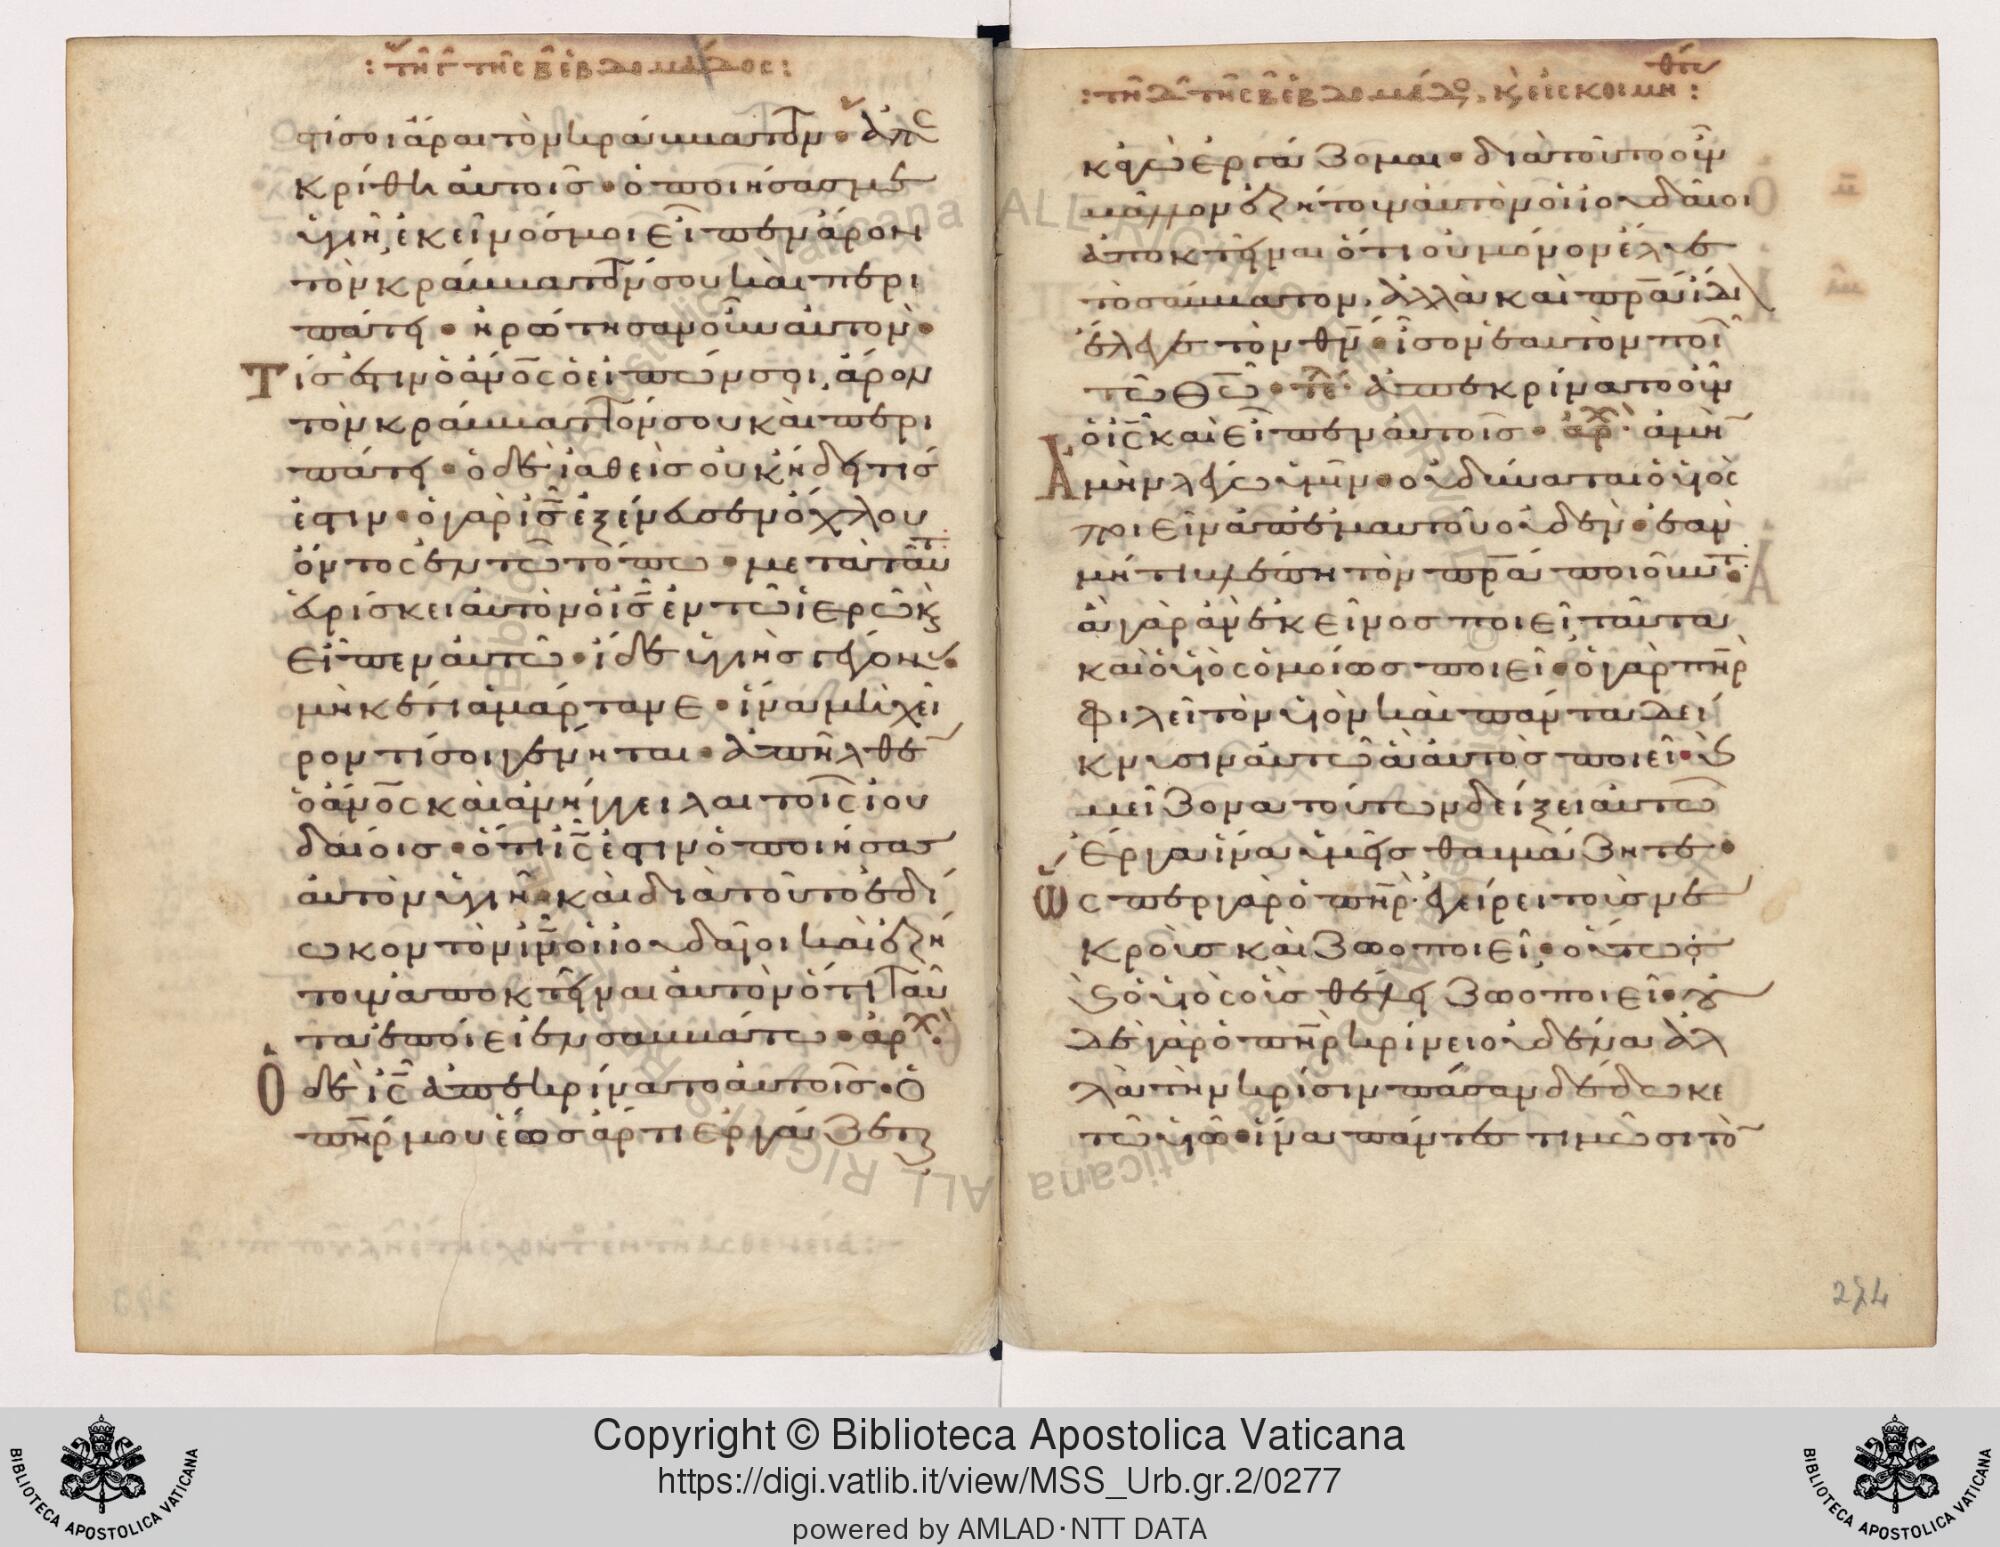 : τῆ γ τῆς β̅ ἑβδομάδος :
στίσοι ἄραι τὸν κράμματτον · ἀπε
κρίθη αὐτοῖσ · ὁ ποιήσασ με
ὑγιῆ, ἐκεῖνόσ μοι εἶπεν ἆρον
τὸν κράμματτόν σου καὶ περι
πάτει · ἠρώτησαν οὖν αὐτὸν ·
Τίσ ἐστιν ὁ ἄν̅ο̅ς ὁ εἰπών σοι, ἆρον
τὸν κράμματτόν σου καὶ περι
πάτει · ὁ δὲ ἰαθεὶσ οὐκ ἤδει τίσ
ἐστιν · ὁ γὰρ ι̅ς̅ ἐξένευσεν ὄχλου
ὄντος ἐν τῶ τόπω · μετὰ ταῦτ
εὑρίσκει αὐτὸν ὁ ι̅ς̅ ἐν τῶ ἱερῶ κ̀
εἶπεν αὐτῶ · ἴδε ὑγιὴσ γέγονασ ·
μηκέτι ἁμάρτανε · ἵνα μὴ χεῖ
ρον τί σοι γένηται · ἀπῆλθε
ὁ ἄν̅ο̅ς καὶ ἀνήγγειλαι τοῖς ἰου
δαίοισ · ὅτι ι̅ς̅ ἐστιν ὁ ποιήσασ
αὐτὸν ὑγιῆ · καὶ διὰ τοῦτο ἐδί
ωκον τὸν ι̅ν̅ οἱ ἰουδαῖοι καὶ ἐζή
τουν ἀποκτεῖναι αὐτὸν ὅτι ταῦ
τα ἐποίει ἐν σαμμάτω · ἀρχ
Ὁ δὲ ι̅ς̅ ἀπεκρίνατο αὐτοῖσ · ὁ
π̅η̅ρ μου ἕωσ ἄρτι ἐργάζεται
: τῆ δ τῆς β̅ ἑβδομάδο, κ̀ εἰς κοιμηθέν :
κἀγὼ ἐργάζομαι · διὰ τοῦτο οὖν
μᾶλλον ἐζήτουν αὐτὸν οἱ ἰουδαῖοι
ἀποκτεῖναι ὅτι οὐ μόνον ἔλυε
τὸ σάμματον, ἀλλὰ καὶ π̅ρ̅α ἴδι
ἔλεγε τὸν θ̅ν̅ · ἴσον ἑαυτὸν ποι
τῶ θ̅ω̅ · τέλ · ἀπεκρίνατο οὖν
ὁ ι̅ς̅ καὶ εἶπεν αὐτοῖσ · ἀρχ · ἀμὴ
Ἀμὴν λέγω ὑμῖν · οὐ δύναται ὁ υἱὸς
ποιεῖν ἀφ' ἑαυτοῦ οὐδὲν · ἐὰν
μή τι βλέπη τὸν π̅ρ̅α ποιοῦντ ·
ἃ γὰρ ἂν ἐκεῖνοσ ποιεῖ ταῦτα
καὶ ὁ υἱὸς ὁμοίωσ ποιεῖ · ὁ γὰρ π̅η̅ρ
φιλεῖ τὸν υἱὸν καὶ πάντα δεί
κνυσιν αὐτῶ ἃ αὐτὸσ ποιεῖ · κ̀
μείζονα τούτων δείξει αὐτῶ
ἔργα ἵνα ὑμεῖσ θαυμάζητε ·
Ὥς περ γὰρ ὁ π̅η̅ρ · ἐγείρει τοὺσ νε
κροὺσ καὶ ζωοποιεῖ · οὕτωσ
κ̀ ὁ υἱὸς οὓσ θέλει ζωοποιεῖ · οὐ
δὲ γὰρ ὁ π̅η̅ρ κρίνει οὐδένα ἀλ
λὰ τὴν κρίσιν πᾶσαν δέδωκε
τῶ υἱῶ · ἵνα πάντεσ τιμῶσι τὸ
274
Copyright © Biblioteca Apostolica Vaticana
https://digi.vatlib.it/view/MSS_Urb.gr.2/0277
powered by AMLAD·NTT DATA
BIBLIOTECA APOSTOLICA VATICANA
BIBLIOTECA APOSTOLICA VATICANA